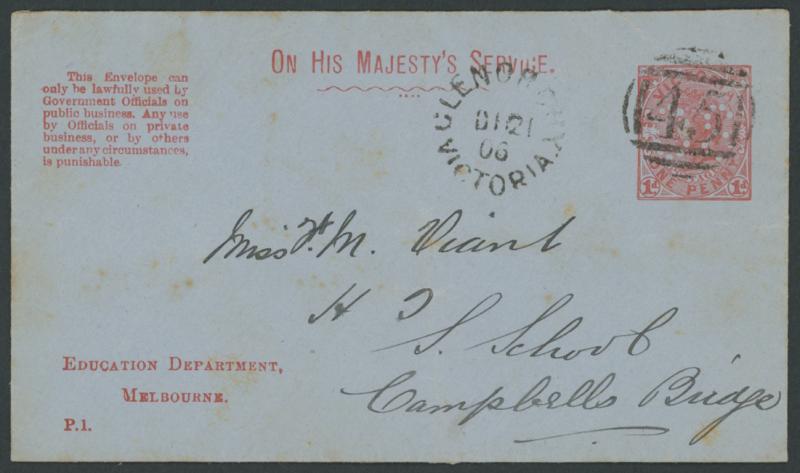 ON HIS MAJESTY'S SERVICE.
This Envelope can
only be lawfully used by
Government Officials on
public business. Any use
by Officials on private
business, or by others
under any circumstances,
is punishable.
GLENORCHY
DE 21
06
VICTORIA.
ONE PENNY
1d 1d
Miss H. M. Viant
H T
S. School
Campbells Bridge
EDUCATION DEPARTMENT,
MELBOURNE.
P.1.